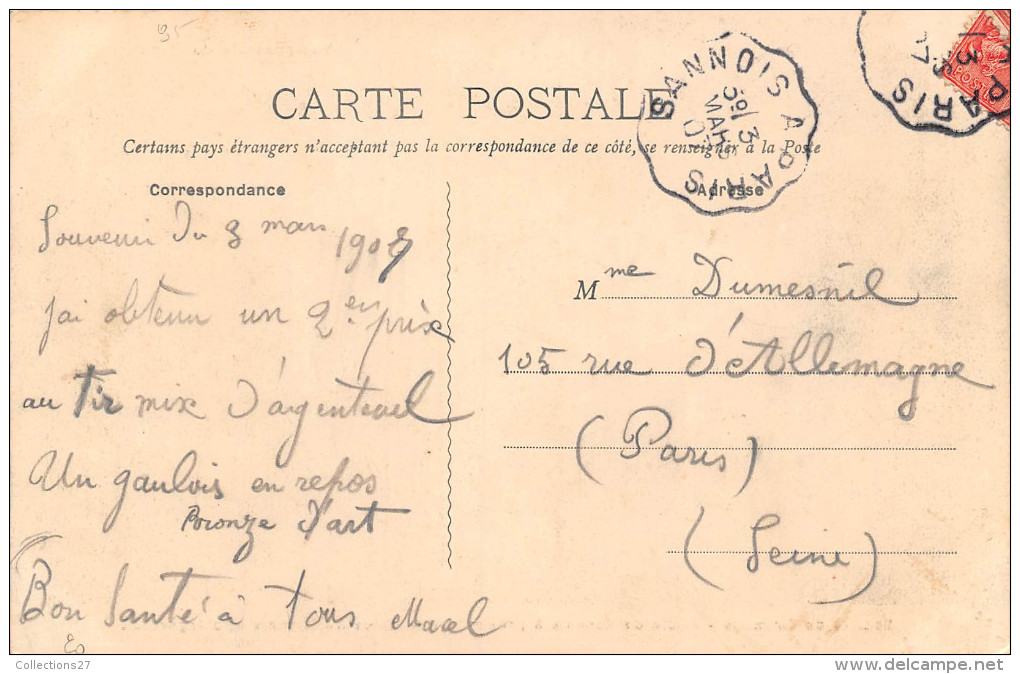 95
CARTE POSTALE
Certains pays étrangers n'acceptent pas la correspondance de ce côté, se renseigner à la Poste
Correspondance
Adresse
SANNOIS A PARIS
3 MARS 07
13
07
PARIS
POSTES
Souvenir Du 3 mars 1907
J'ai obtenu un 2en prix
au Tir mixe D'argenteuel
Un gaulois en repos
Poronze D'art
Bon Santé à Tous Macel
Mme Dumesnil
105 rue D'Allemagne
(Paris)
(Seine)
Collections27
delcampe.net